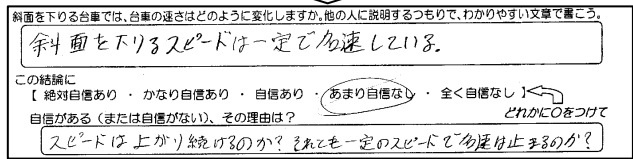 斜面を下りる台車では、台車の速さはどのように変化しますか。他の人に説明するつもりで、わかりやすい文章で書こう。
斜面を下りるスピードは一定で加速している。
この結論に
【 絶対自信あり ・ かなり自信あり ・ 自信あり ・ あまり自信なし ・ 全く自信なし 】
どれかに○をつけて
自信がある(または自信がない)、その理由は?
スピードは上がり続けるのか? それとも一定のスピードで加速は止まるのか?